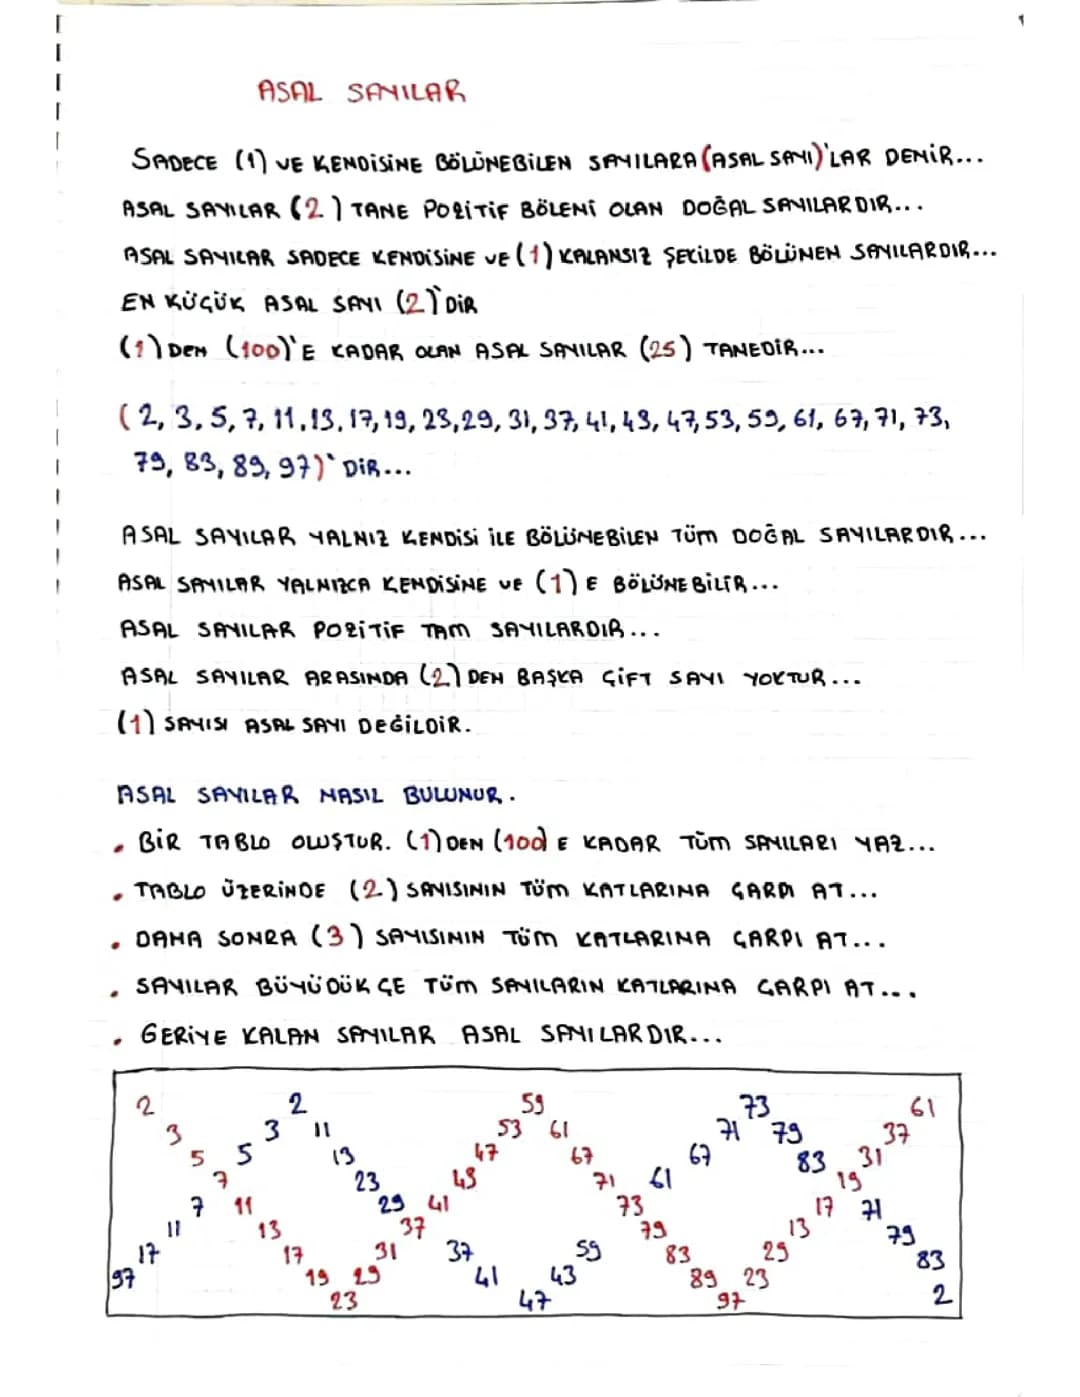 ASAL SAYILAR
SADECE (1) VE KENDİSİNE BÖLÜNEBİLEN SAYILARA (ASAL SAYI)'LAR DENİR...
ASAL SAYILAR (2) TANE POZİTİF BÖLENİ OLAN DOĞAL SAYILARDIR...
ASAL SAYILAR SADECE KENDİSİNE VE (1) KALANSIZ ŞEKİLDE BÖLÜNEN SAYILARDIR...
EN KÜÇÜK ASAL SAYI (2)'DİR
(1) DEN (100)'E KADAR OLAN ASAL SAYILAR (25) TANEDİR...
(2, 3, 5, 7, 11, 13, 17, 19, 23, 29, 31, 37, 41, 43, 47, 53, 59, 61, 67, 71, 73,
79, 83, 89, 97)'DİR...
ASAL SAYILAR YALNIZ KENDİSİ İLE BÖLÜNEBİLEN TÜM DOĞAL SAYILARDIR...
ASAL SAYILAR YALNIZCA KENDİSİNE VE (1) E BÖLÜNEBİLİR...
ASAL SAYILAR POZİTİF TAM SAYILARDIR...
ASAL SAYILAR ARASINDA (2) DEN BAŞKA ÇİFT SAYI YOKTUR...
(1) SAYISI ASAL SAYI DEĞİLDİR.
ASAL SAYILAR NASIL BULUNUR.
• BİR TABLO OLUŞTUR. (1) DEN (100) E KADAR TÜM SAYILARI YAZ...
• TABLO ÜZERİNDE (2) SAYISININ TÜM KATLARINA ÇARPI AT...
• DAHA SONRA (3) SAYISININ TÜM KATLARINA ÇARPI AT...
• SAYILAR BÜYÜDÜKÇE TÜM SAYILARIN KATLARINA ÇARPI AT...
• GERİYE KALAN SAYILAR ASAL SAYILARDIR...
2 2 59 73 61
3 3 11 53 61 71 79 37
5 5 13 47 67 67 83 31
7 23 43 71 61 19
7 11 29 41 73 17 71
11 13 37 79 13 79
17 17 31 37 59 83 29 83
97 19 29 41 43 89 23 2
23 47 97